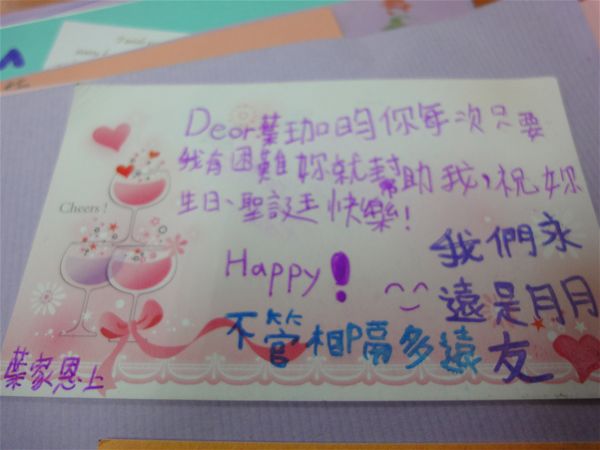 Dear葉珈昀你每次只要
我有困難妳就幫助我,祝妳
生日、聖誕快樂!
Cheers !
Happy!
不管相隔多遠
我們永
遠是朋
友
葉家恩上